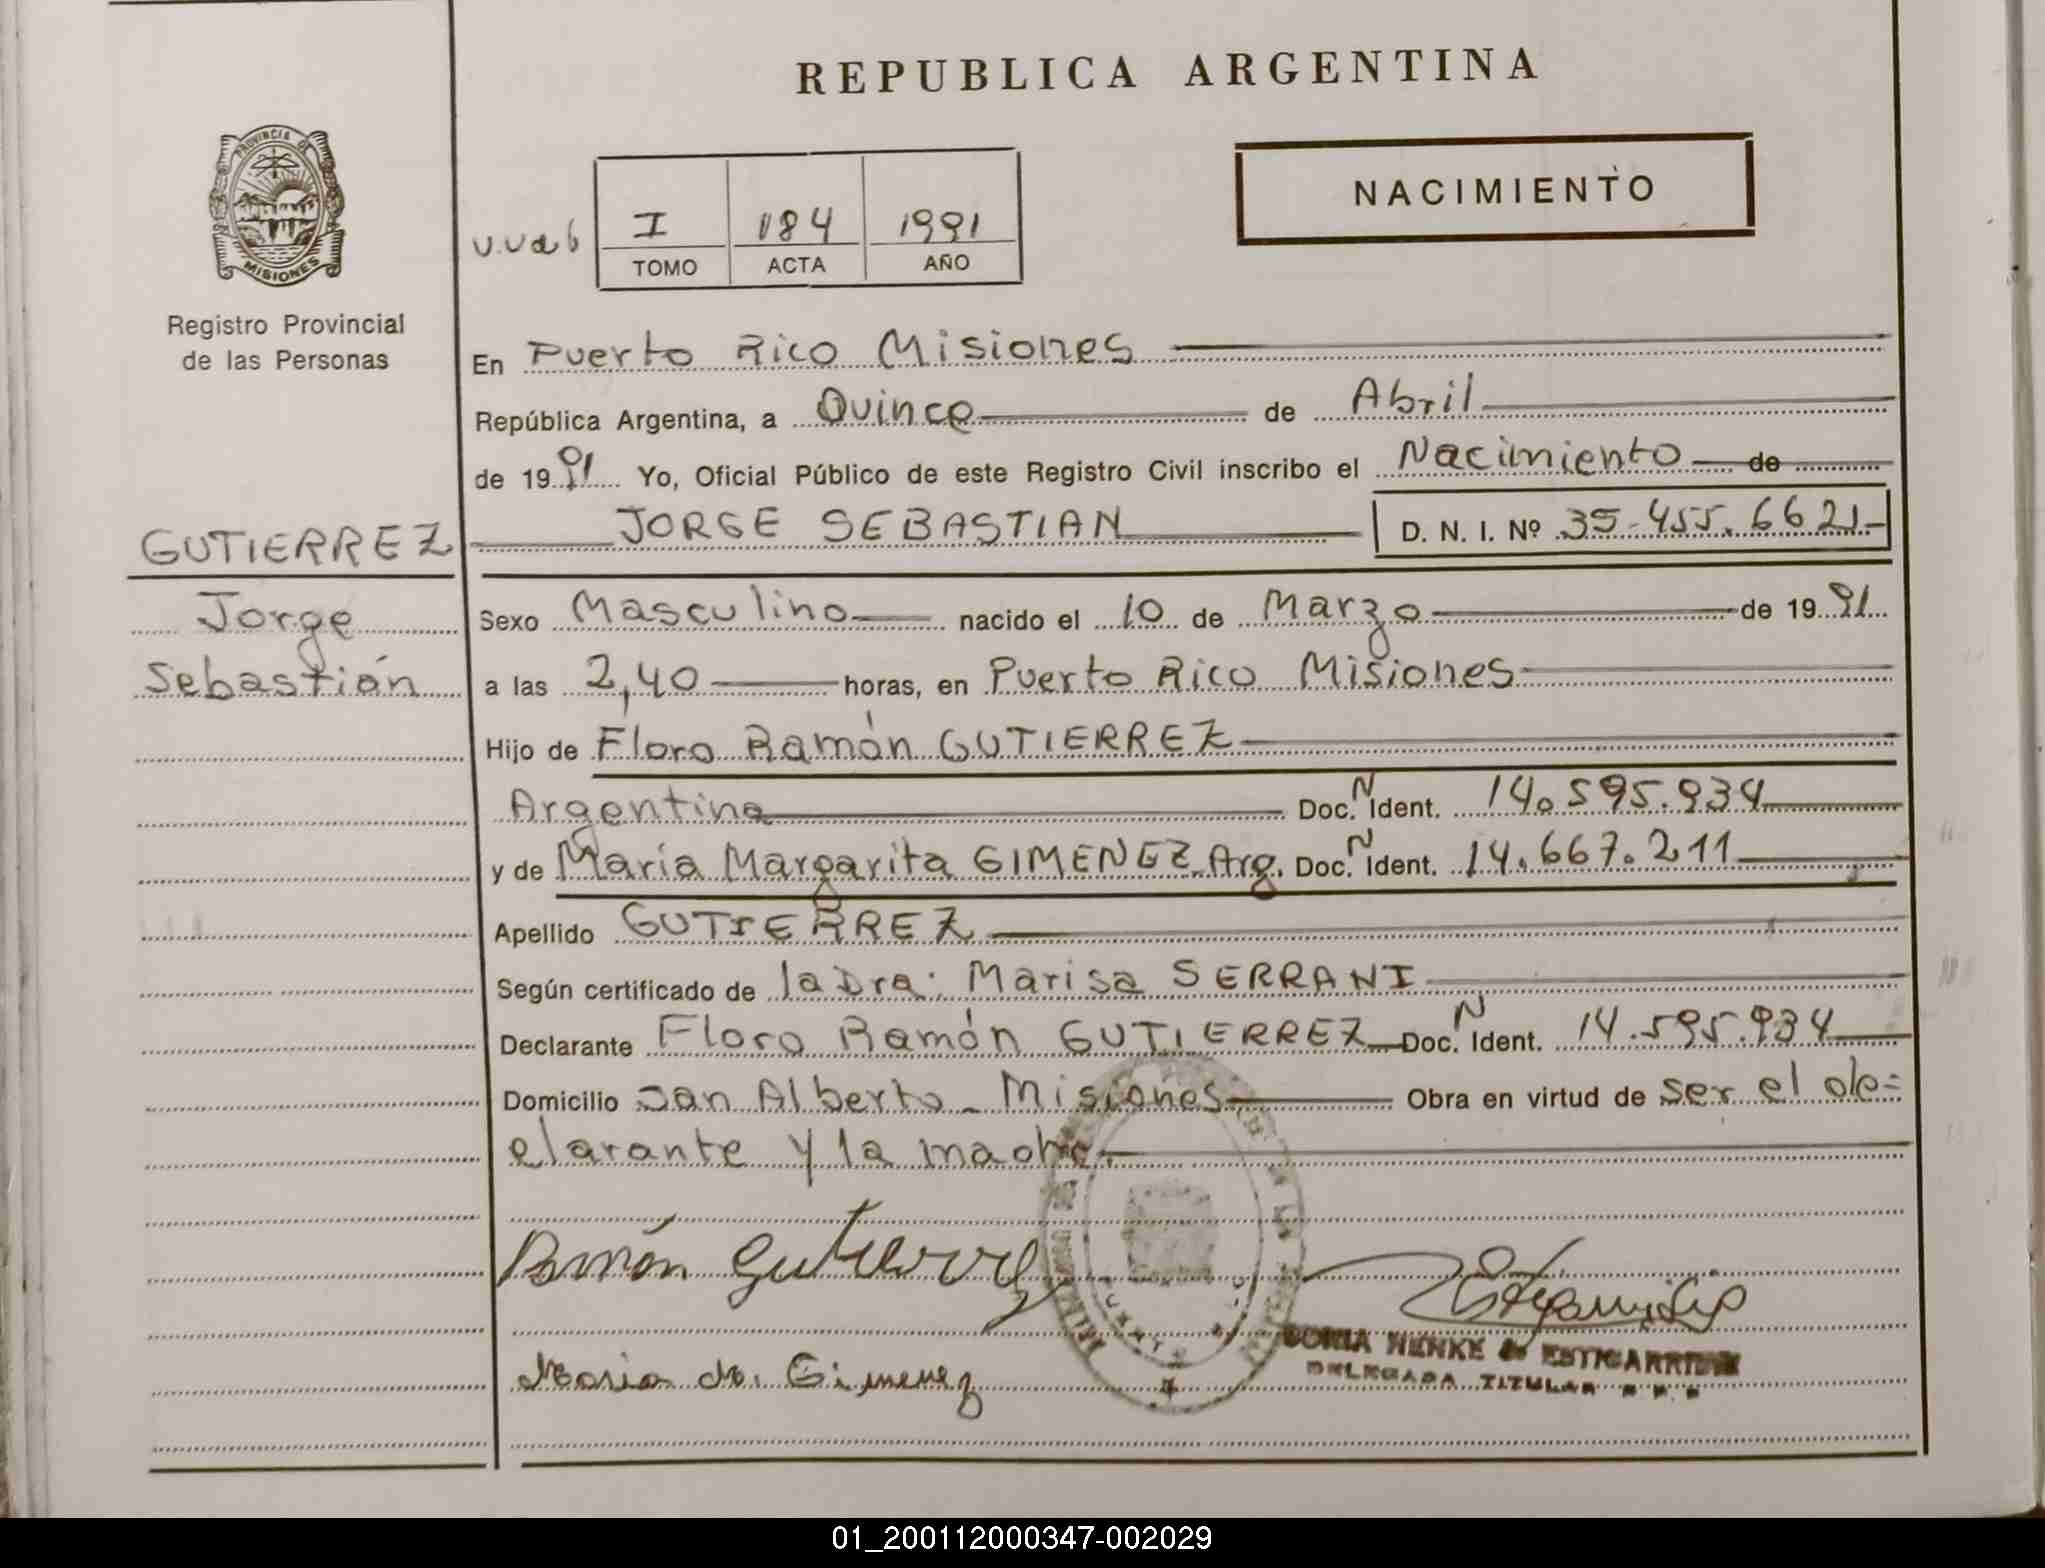 REPUBLICA ARGENTINA
PROVINCIA DE
MISIONES
Registro Provincial
de las Personas
I 184 1991
TOMO ACTA AÑO
NACIMIENTO
En Puerto Rico Misiones
República Argentina, a Quince de Abril
de 1991 Yo, Oficial Público de este Registro Civil inscribo el Nacimiento de
GUTIERREZ
Jorge
Sebastián
JORGE SEBASTIAN D. N. I. Nº 35.455.6621-
Sexo Masculino nacido el 10 de Marzo de 1991
a las 2,40 horas, en Puerto Rico Misiones
Hijo de Floro Ramón GUTIERREZ
Argentina Doc. N Ident. 14.595.934
y de María Margarita GIMENEZ Arg. Doc. N Ident. 14.667.211
Apellido GUTIERREZ
Según certificado de la Dra. Marisa SERRANI
Declarante Floro Ramón GUTIERREZ Doc. N Ident. 14.595.934
Domicilio San Alberto - Misiones Obra en virtud de ser el de=
clarante y la madre.
Ramón Gutierrez
Maria M. Gimenez
SONIA HENKE de ESTIGARRIBIA
DELEGADA TITULAR
01_200112000347-002029